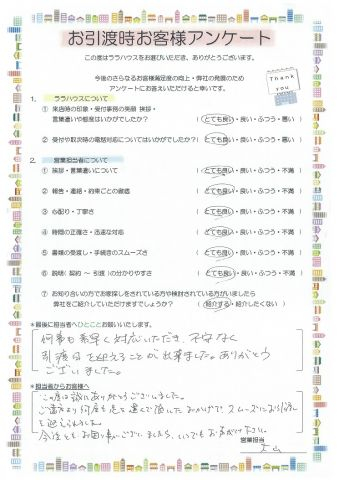 お引渡時お客様アンケート
この度はララハウスをお選びいただき、ありがとうございます。
今後のさらなるお客様満足度の向上・弊社の発展のため
アンケートにお答えいただけると幸いです。
Thank
you
1. ララハウスについて
① 来店時の印象・受付事務の笑顔 挨拶・
言葉遣いや態度はいかがでしたか? (とても良い・良い・ふつう・悪い)
② 受付や取次時の電話対応についてはいかがでしたか? (とても良い・良い・ふつう・悪い)
2. 営業担当者について
① 挨拶・言葉遣いについて (とても良い・良い・ふつう・不満)
② 報告・連絡・約束ごとの徹底 (とても良い・良い・ふつう・不満)
③ 心配り・丁寧さ (とても良い・良い・ふつう・不満)
④ 時間の正確さ・迅速な対応 (とても良い・良い・ふつう・不満)
⑤ 書類の受渡し・手続きのスムーズさ (とても良い・良い・ふつう・不満)
⑥ 説明(契約 ~ 引渡)の分かりやすさ (とても良い・良い・ふつう・不満)
⑦ お知り合いの方でお家探しをされている方や検討されている方がいましたら
弊社をご紹介していただけますでしょうか? (紹介する・紹介したくない)
*最後に担当者へひとことお願いいたします。
何事も素早く対応いただき、不安なく
引渡日を迎えることが出来ました。ありがとう
ございました。
*担当者からお客様へ
この度は誠にありがとうございました。
ご多忙な中何度も足を運んで頂いたおかげで スムーズにお引渡し
を迎えれました。
今後ともお困り事がございましたら、いつでもお声がけ下さい。
営業担当